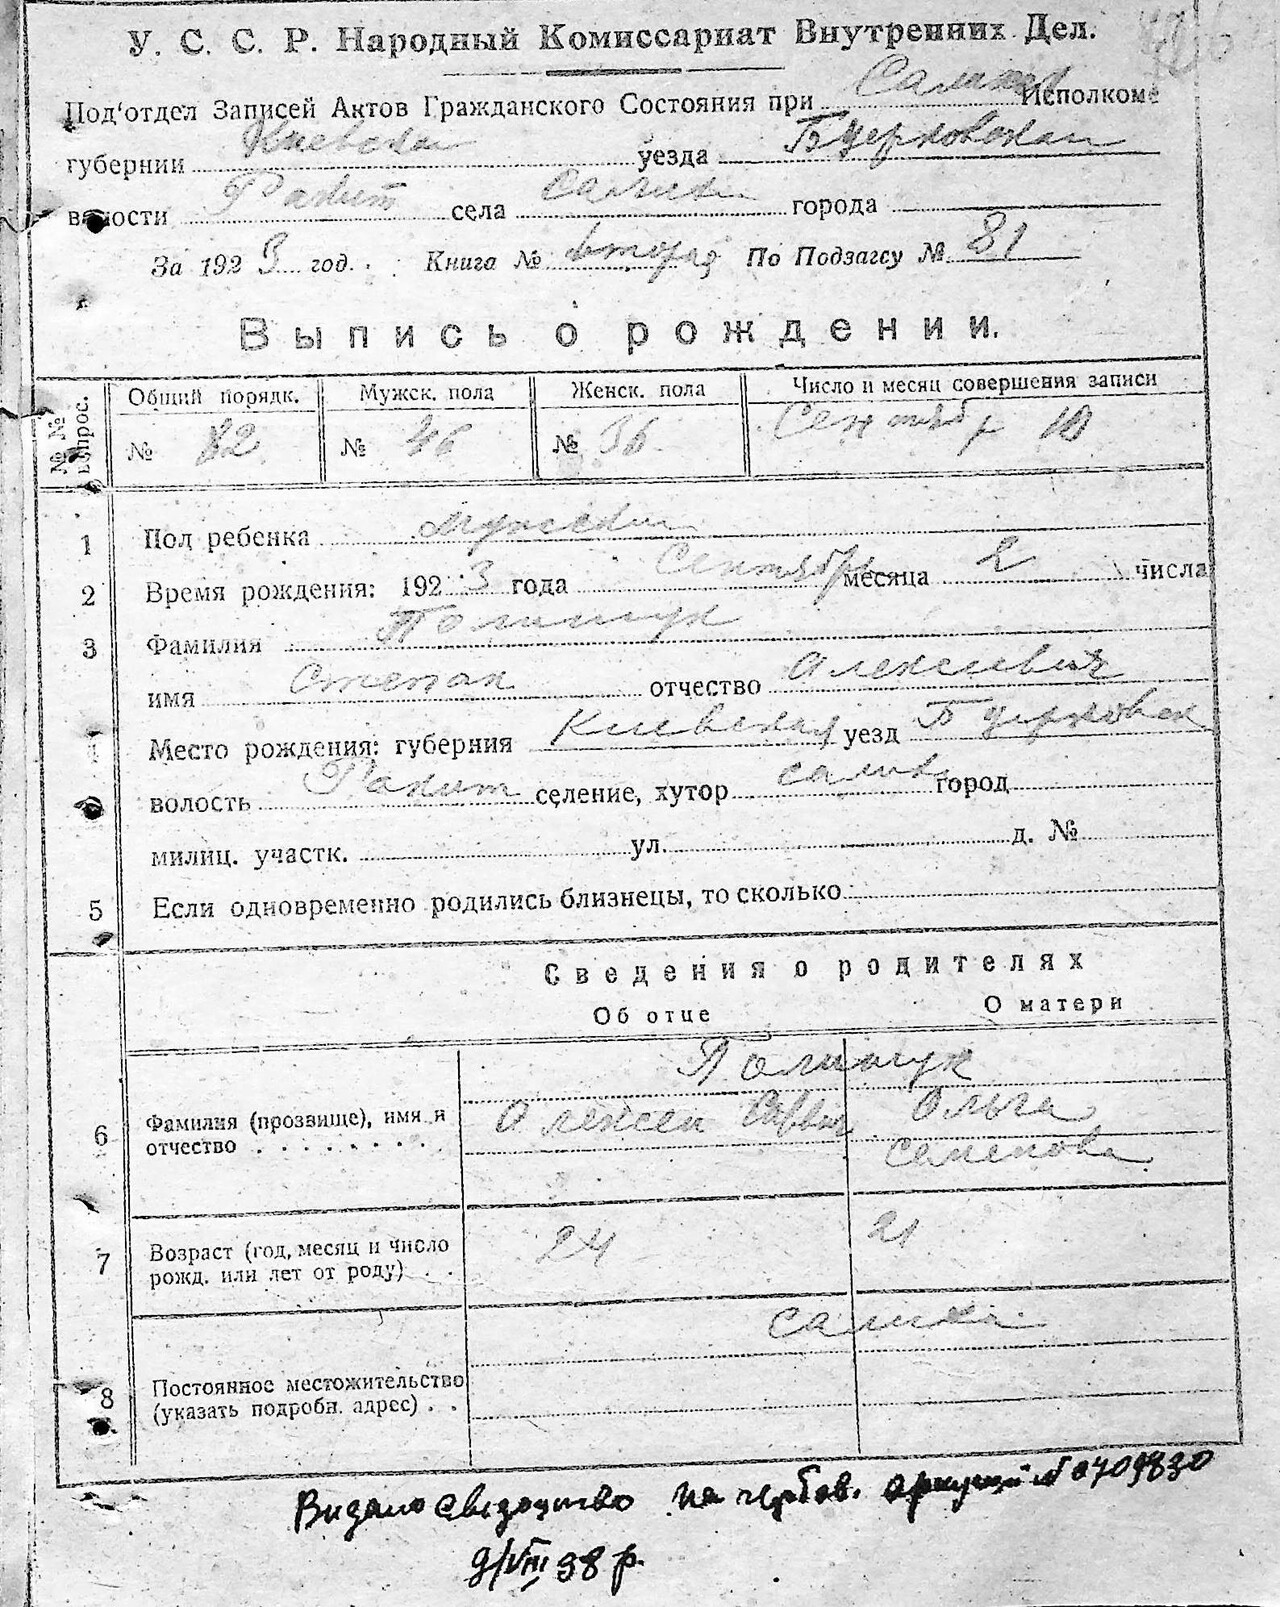 У. С. С. Р. Народный Комиссариат Внутренних Дел.
Под'отдел Записей Актов Гражданского Состояния при Исполкоме
губернии Киевская уезда Бцерковская
волости Ракит села Салиха города
За 1923 год. Книга № вторая По Подзагсу № 81
Выпись о рождении.
№ № вопрос. Общий порядк. Мужск. пола Женск. пола Число и месяц совершения записи
№ 82 № 46 № 36 Сентябр 10
1 Пол ребенка мужской
2 Время рождения: 1923 года Сентябр месяца 2 числа
3 Фамилия Полищук
имя Степан отчество Алексиевич
4 Место рождения: губерния Киевская уезд Бцерковск
волость Ракит селение, хутор Салиха город
милиц. участк. ул. д. №
5 Если одновременно родились близнецы, то сколько
Сведения о родителях
Об отце О матери
Полищук
6 Фамилия (прозвище), имя и отчество . . . . . . . . Олексей Ольга
Семенова
7 Возраст (год, месяц и число рожд. или лет от роду) . . 24 21
Салиха
8 Постоянное местожительство (указать подробн. адрес) . .
Видало свидоцтво на гербов. аркуші № 0709830
9/VIII 38 р.